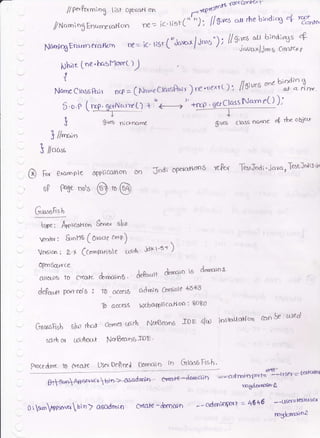 //performing list operation on
//NamingEnumeration ne = ic.list(" "); //gives all the binding of root Context
NamingEnumeration ne = ic.list("Javax/Jms"); //gives all bindings of Javax/Jms Context
while (ne.hasMore())
{
NameClassPair ncp = (NameClassPair) ne.next(); //gives one binding at a time
S.o.p (ncp.getName() + " <----> " + ncp.getClassName());
gives nickname gives class name of the object
}
} //main
} //class
* For Example application on Jndi operations refer TestJndi.java, TestJndi1
of page no's 67 to 69
GlassFish
type: Application Server s/w
vendor: SunMS (Oracle Corp)
Version: 2.x (compatible with jdk1.5+)
Opensource
allows to create domains. default domain is domain1
default port no's: To access admin console 4848
To access webapplication: 8080
GlassFish s/w that comes with NetBeans IDE s/w installation can be used
with or without NetBeans IDE.
Procedure to create User Defined Domain in GlassFish.
D:\Sun\AppServer\bin> asadmin create-domain --adminport --user = testuser
mydomain2
D:\Sun\AppServer\bin> asadmin create-domain --adminport = 4646 --user=testuser
mydomain2